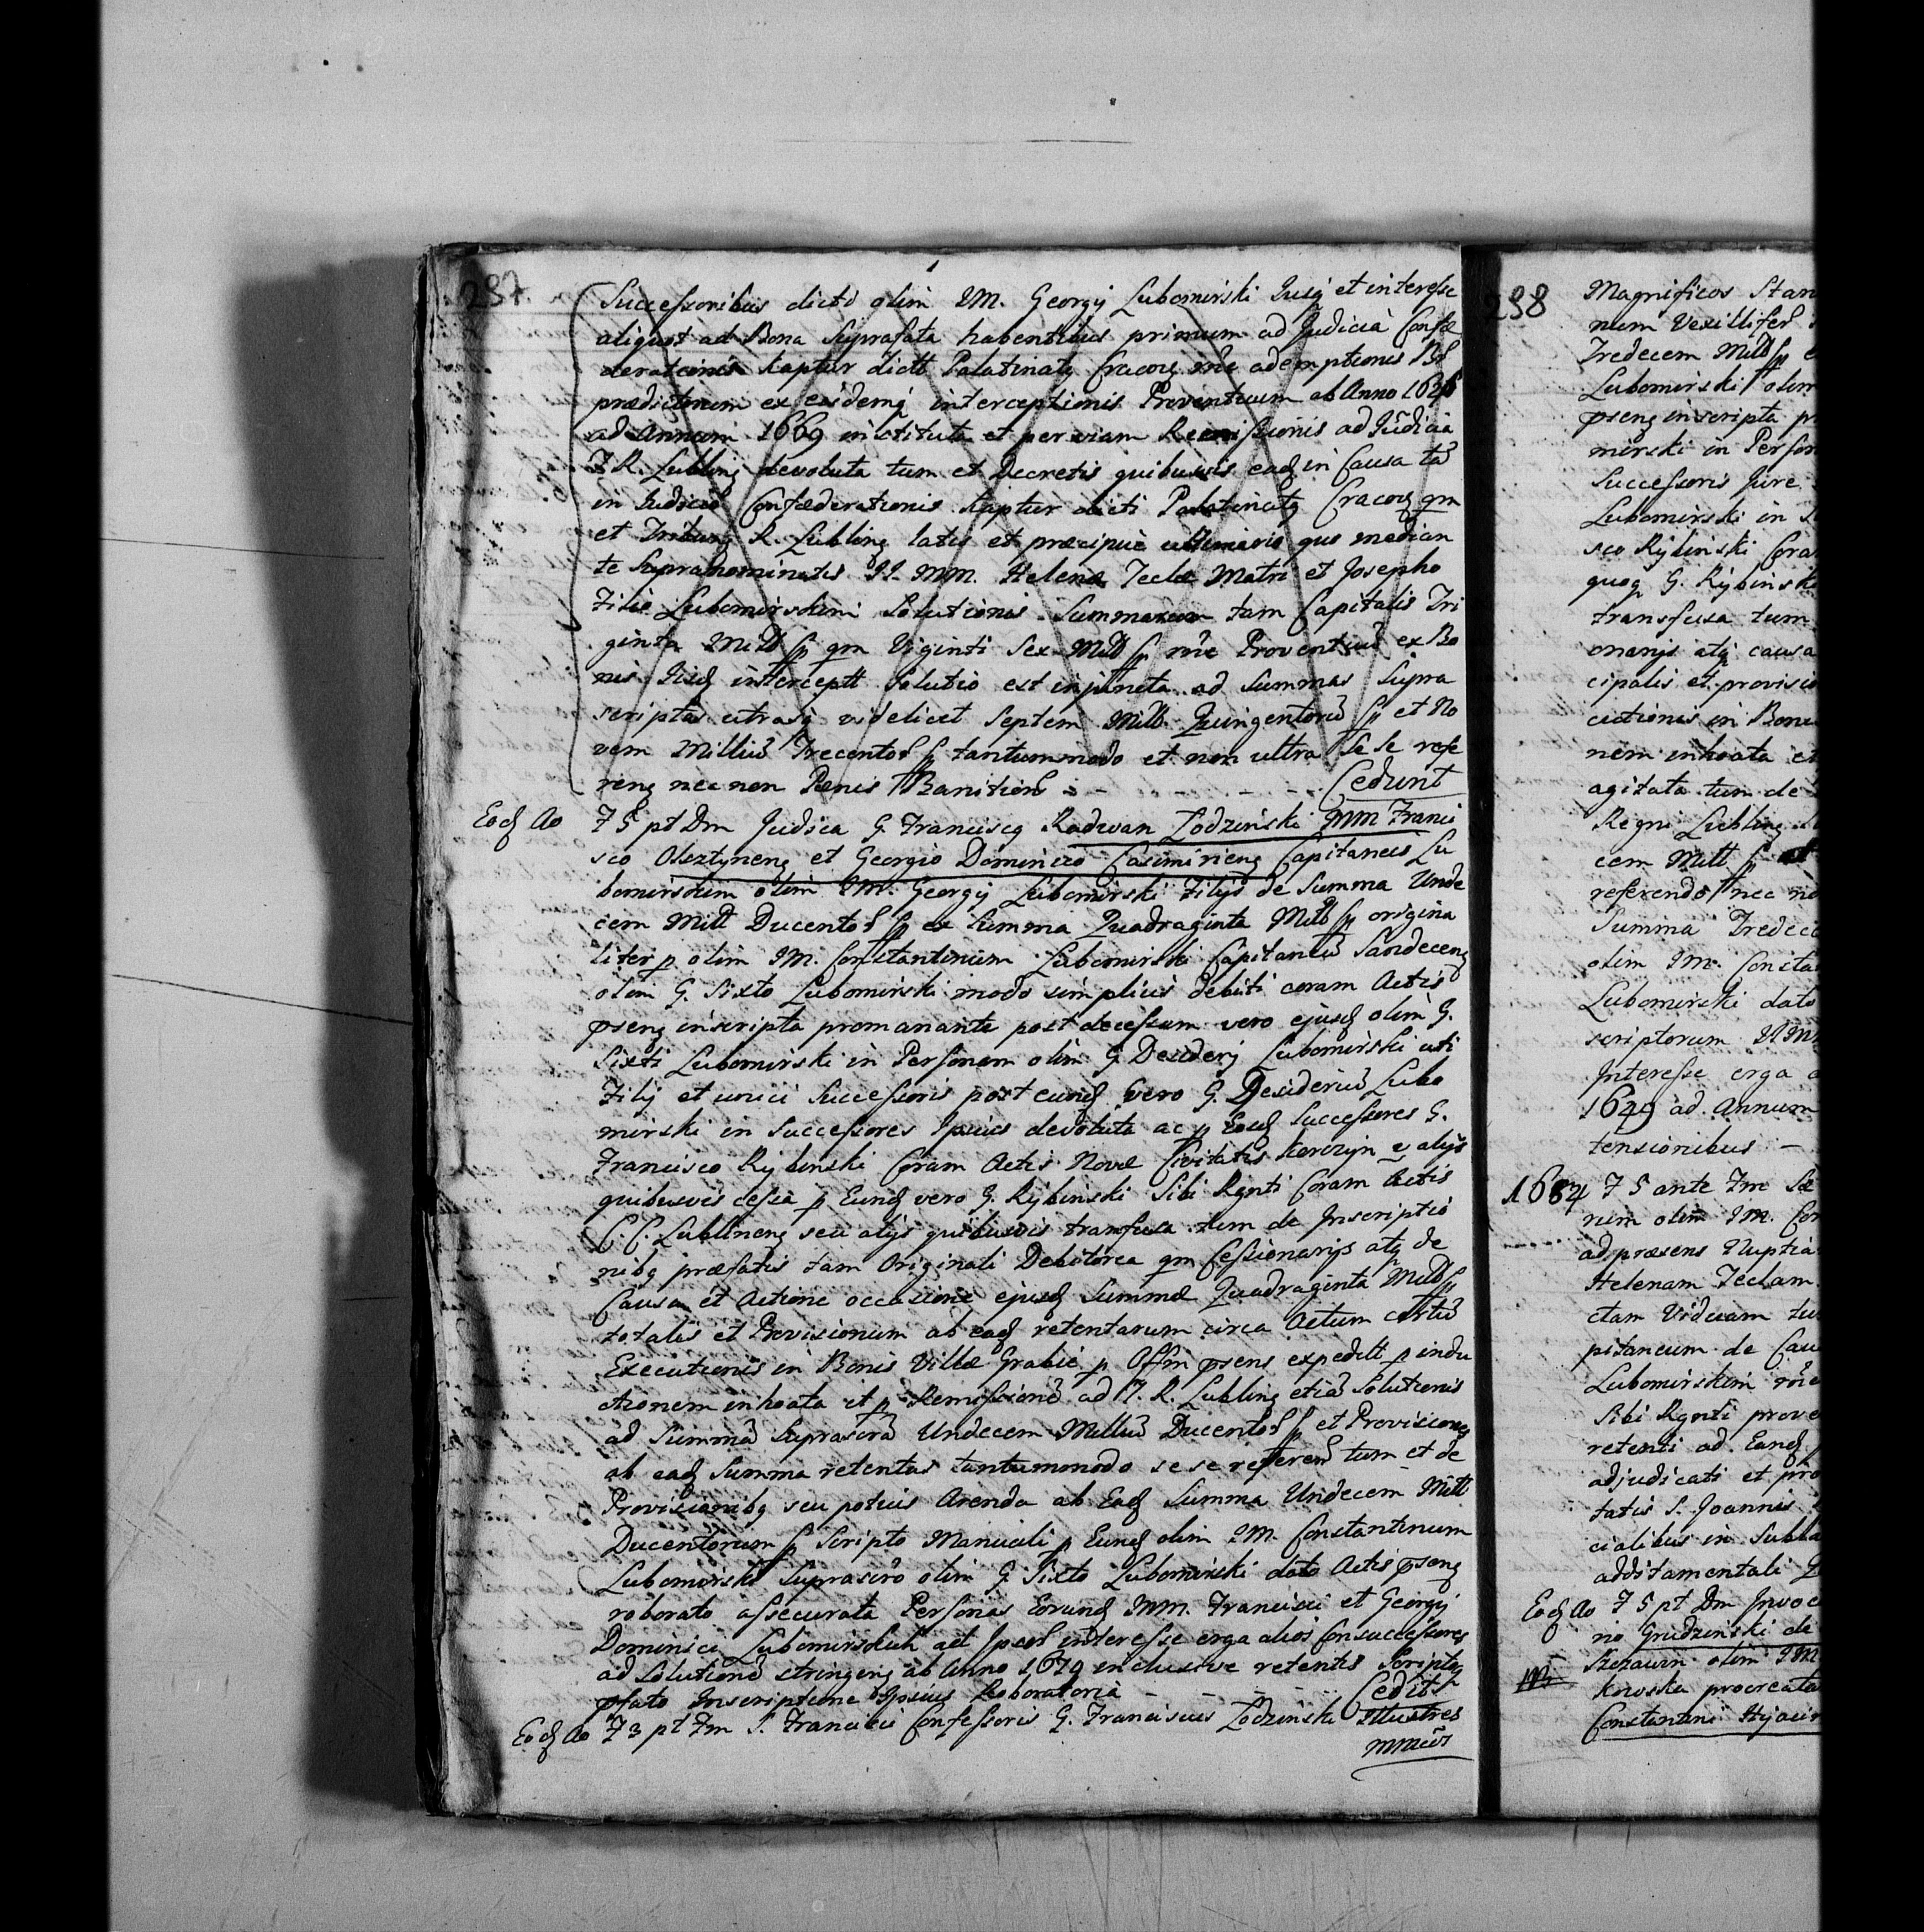 237.
Successoribus dicti olim IM. Georgij Lubomirski Jusq et interesse
aliquot ad Bona Suprafata habentibus primum ad Judicia Confæ
derationis Kaptur dictt Palatinatq Cracoq rne ademptionis
prædictorum ex eisdemq interceptionis Proventuum ab Anno
ad Annum 1669 instituta et per viam Remissionis ad Judicia
T R. Lublinq devoluta tum et Decretis quibusvis eadq in Causa tā
in Judicio Confæderationis Kaptur dicti Palatinatq Cracoq qm
et Tribunq R. Lublinq latis et præcipuè ultimario quo median
te Supranominatis II. MM. Helenæ Teclæ Matri et Josepho
Filio Lubomirskim Solutionis Summarum tam Capitalis Tri
ginta Mill fp qm Viginti Sex Mill fp rne Proventuū ex Bo
nis Iisdq interceptt Solutio est injuncta ad Summas Supra
scriptas utrasq videlicet Septem Mill Quingentorū fp et No
vem Milliū Trecentor fp tantummodo et non ultra Se Se refe
renq nec non Pænis Banition - - - - Cedunt
Eodq Ao F 5 pt Dm Judica G. Franciscq Radwan Lodzinski MM Franci
sco Olsztynenq et Georgio Dominico Casimirienq Capitaneis Lu
bomirskim olim IM. Georgij Lubomirski Filijs de Summa Unde
cem Mill Ducentor fp ex Summa Quadraginta Mill fp origina
liter p olim IM. Constantinum Lubomirski Capitaneū Sandecenq
olim G. Sixto Lubomirski modo simplicis debiti coram Actis
psenq inscripta promanante post decessum vero ejusdq olim G.
Sixti Lubomirski in Personam olim G. Desiderij Lubomirski uti
Filij et unici Successoris post eundq vero G. Desideriū Lubo
mirski in Successores Ipsius devoluta ac p Eosdq Successores G.
Francisco Rybinski Coram Actis Novæ Civitatis Korczyn e alijs
quibusvis cessa p Eundq vero G. Rybinski Sibi Rgnti Coram Actis
C. C. Lublinenq seu alijs quibusvis transfusa tum de Inscriptio
nibq præfatis tam Originali Debitorea qm Cessionarijs atq de
Causa et Actione occasione ejusdq Summæ Quadraginta Mill fp
totalis et Provisionum ab eadq retentarum circa Actum certū
Executionis in Bonis Villæ Grabie p Offm psens expeditt p indu
ctionem inhoata et p Remissionē ad T. R. Lublinq etiā Solutionis
ad Summā Suprascrā Undecem Milliū Ducentor fp et Provisiones
ab eadq Summa retentas tantummodo se se referenq tum et de
Provisionibq seu potius Arenda ab Eadq Summa Undecem Mill
Ducentorum fp Scripto Manuali p Eundq olim IM. Constantinum
Lubomirski Suprascro olim G. Sixto Lubomirski dato Actis psenq
roborato assecurata Personas Eorundq MM. Francisci et Georgij
Dominici Lubomirskich ad Ipsor interesse erga alios Consuccessores
ad Solutionē stringenq ab Anno 1679 inclusive retentis Scripto
pfato Inscriptione Ipsius Roboratoria - - - - Cedit
Eodq Ao F 3 pt Fm S. Francisci Confessoris G. Franciscus Lodzinski Illustres
238
Magnificos Stan
num Vexillifer
Tredecem Mill fp
Lubomirski olim
psenq inscripta
mirski in Person
Successoris jure
Lubomirski in
sco Rybinski Cora
quoq G. Rybinsk
transfusa tum
onarijs atq causa
cipalis et provisio
cutionis in Bonis
nem inhoata et
agitata tum de
Regni Lublinq
cem Mill fp
referendo nec no
Summa Tredec
olim IM. Consta
Lubomirski dato
scriptorum
Interesse erga
1649 ad Annum
tensionibus -
1684 F 5 ante Fm
rum olim IM. Con
ad præsens Nuptia
Helenam Teclam
ctam Viduam
pitaneum de Cau
Lubomirskim rne
Sibi Rgnti prove
retenti ad Eundq
adjudicati et pro
tatis S. Joannis
cialibus in Subla
additamentali
Eodq Ao F 5 pt Dm Invoc
no Grudzinski de
olim IM
kowska procreata
Constantini Hyacin